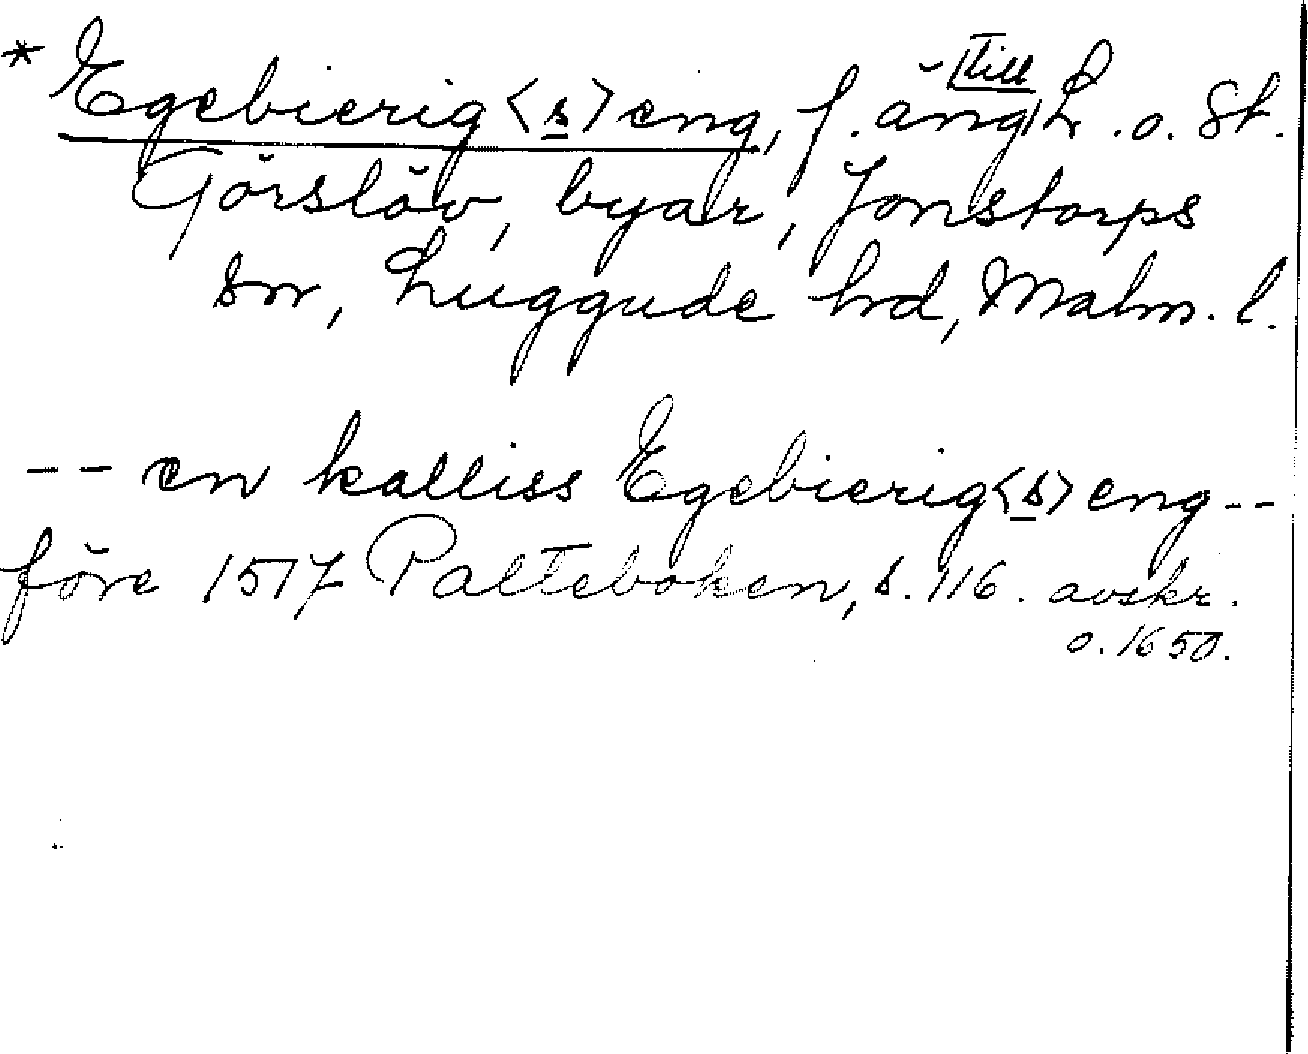 * Egebierig<s>eng, f. äng till L. o. St.
Görslöv, byar, Jonstorps
sn, Luggude hd, Malm. l.
-- en kalliss Egebierig<s>eng --
före 1517 Palteboken, s. 116. avskr.
o. 1650.